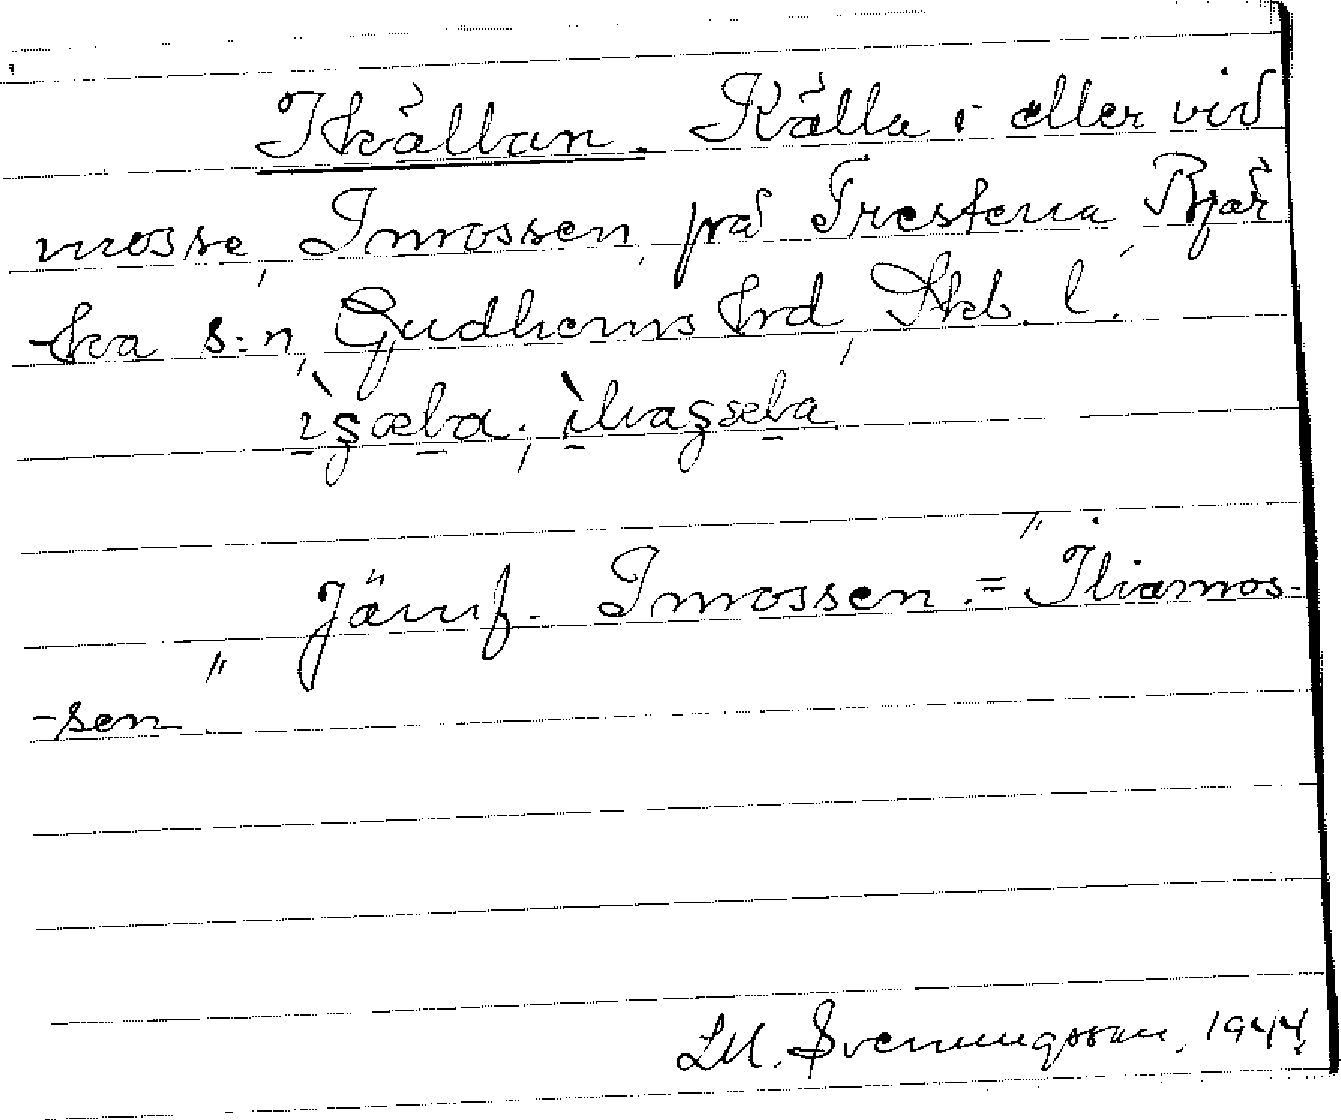 Ikällan. Källa i eller vid
mosse, Imossen, på Trestena, Bjär
ka s:n, Gudhems hrd, Skb. l.
Jämf. Imossen = "Iliamos-
-sen"
LM. Svenungsson, 1944